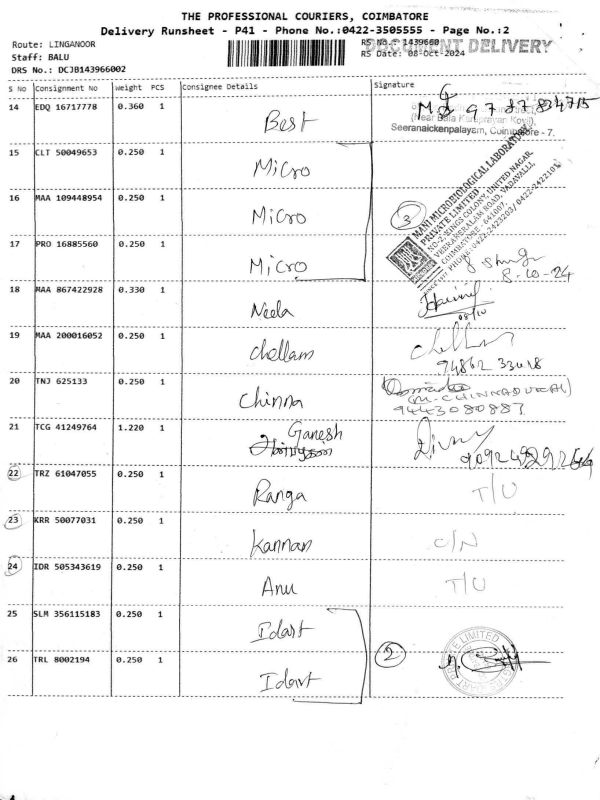 THE PROFESSIONAL COURIERS, COIMBATORE
Delivery Runsheet - P41 - Phone No.:0422-3505555 - Page No.:2
Route: LINGANOOR
RS No.: 1439660
DOCUMENT DELIVERY
Staff: BALU
RS Date: 08-Oct-2024
DRS No.: DCJB143966002
S No Consignment No Weight PCS Consignee Details Signature
14 EDQ 16717778 0.360 1 Best
(Near Bala Kumprayan Kovil),
Seeranaickenpalayam, Coimbatore - 7.
15 CLT 50049653 0.250 1 Micro
16 MAA 109448954 0.250 1 Micro 3
MANI MICROBIOLOGICAL LABORATORY
PRIVATE LIMITED
NO-2, KINGS COLONY, UNITED NAGAR
VEERAKERALAM ROAD, VADAVALLI,
COIMBATORE - 641007.
PHONE: 0422-2423203/ 0422-2422101
17 PRO 16885560 0.250 1 Micro
8-10-24
18 MAA 867422928 0.330 1 Neela
08/10
19 MAA 200016052 0.250 1 chellam
94862 33018
20 TNJ 625133 0.250 1 Chinna
(M. CHINNADURAI)
9443080887
21 TCG 41249764 1.220 1 Ganesh
22 TRZ 61047055 0.250 1 Ranga T/U
23 KRR 50077031 0.250 1 Kannan C/N
24 IDR 505343619 0.250 1 Anu T/U
25 SLM 356115183 0.250 1 Idart
26 TRL 8002194 0.250 1 Idart 2